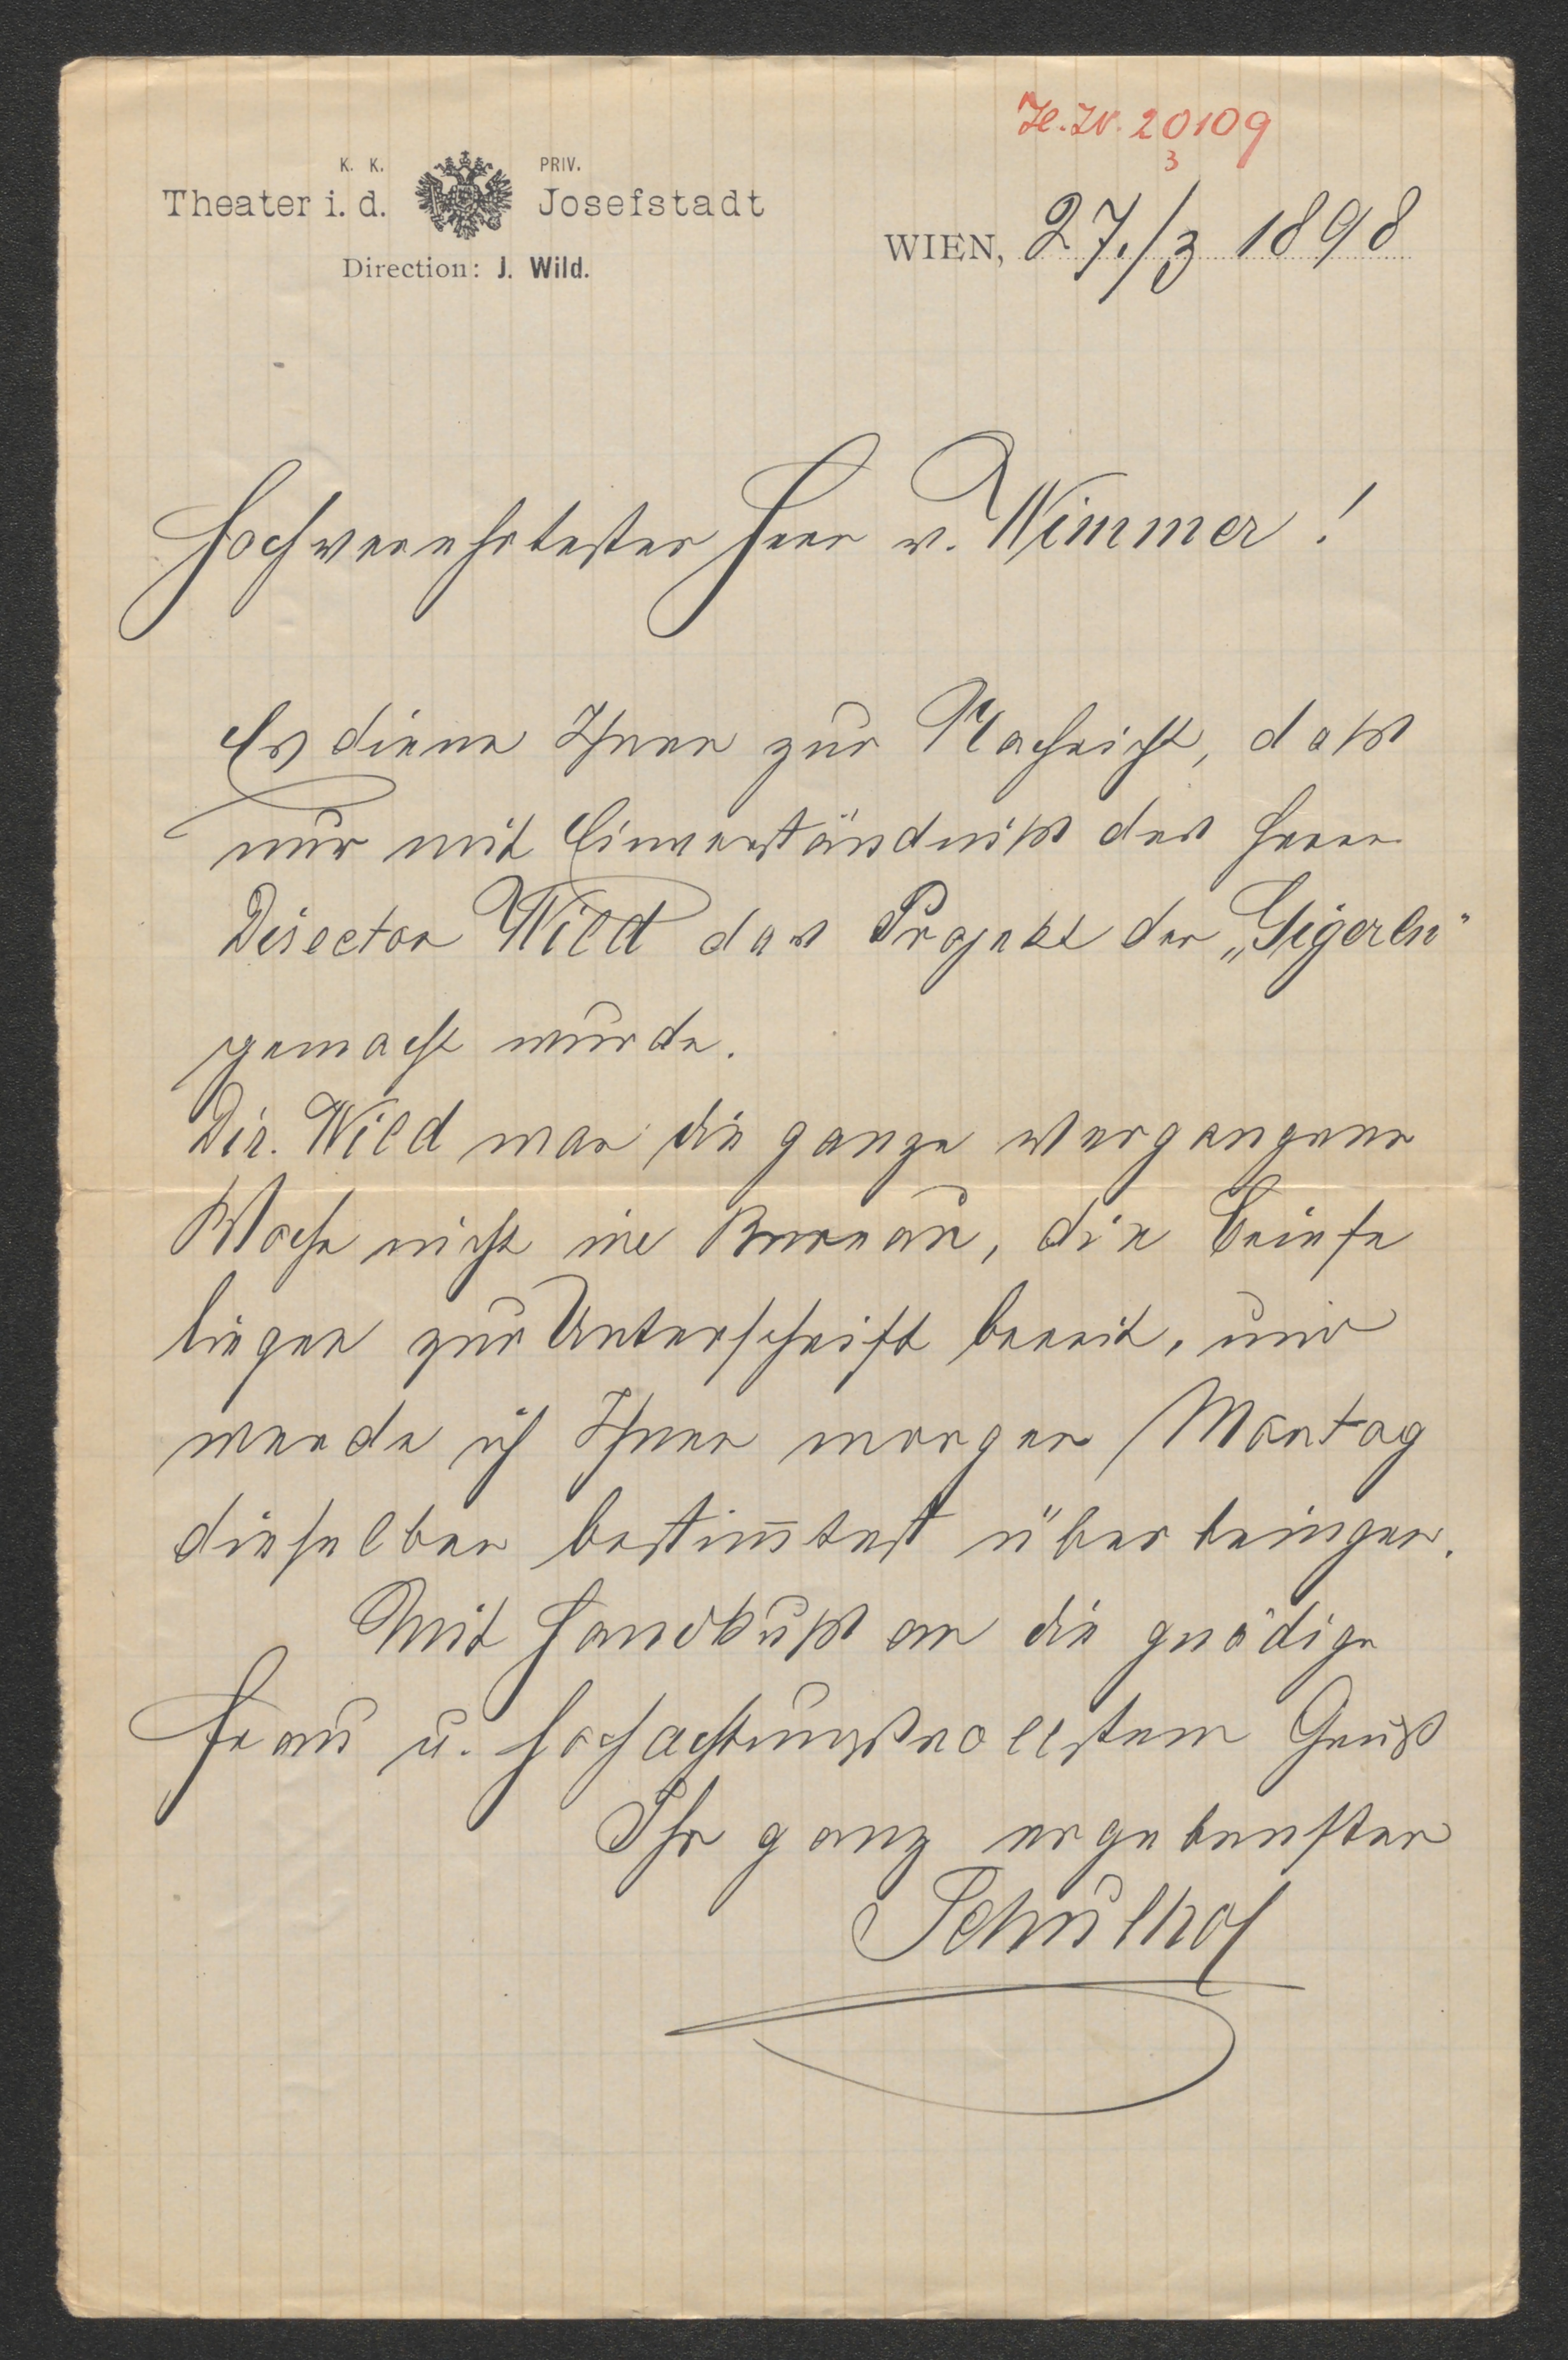 H. I. N. 20109
3
K. K. PRIV.
Theater i. d. Josefstadt
Direction: J. Wild.
WIEN, 27./3 1898
Hochverehrtester Herr v. Wimmer!
Es diene Ihnen zur Nachricht, daß
nur mit Einverständniß des Herrn
Director Wild das Projekt der „Gigerln"
gemacht wurde.
Dir. Wild war die ganze vergangene
Woche nicht im Bureau, die Briefe
liegen zur Unterschrift bereit, und
werde ich Ihnen morgen Montag
dieselben bestim̄test überbringen.
Mit Handkuß an die gnädige
Frau u. hochachtungsvollstem Gruß
Ihr ganz ergebenster
Schulhof